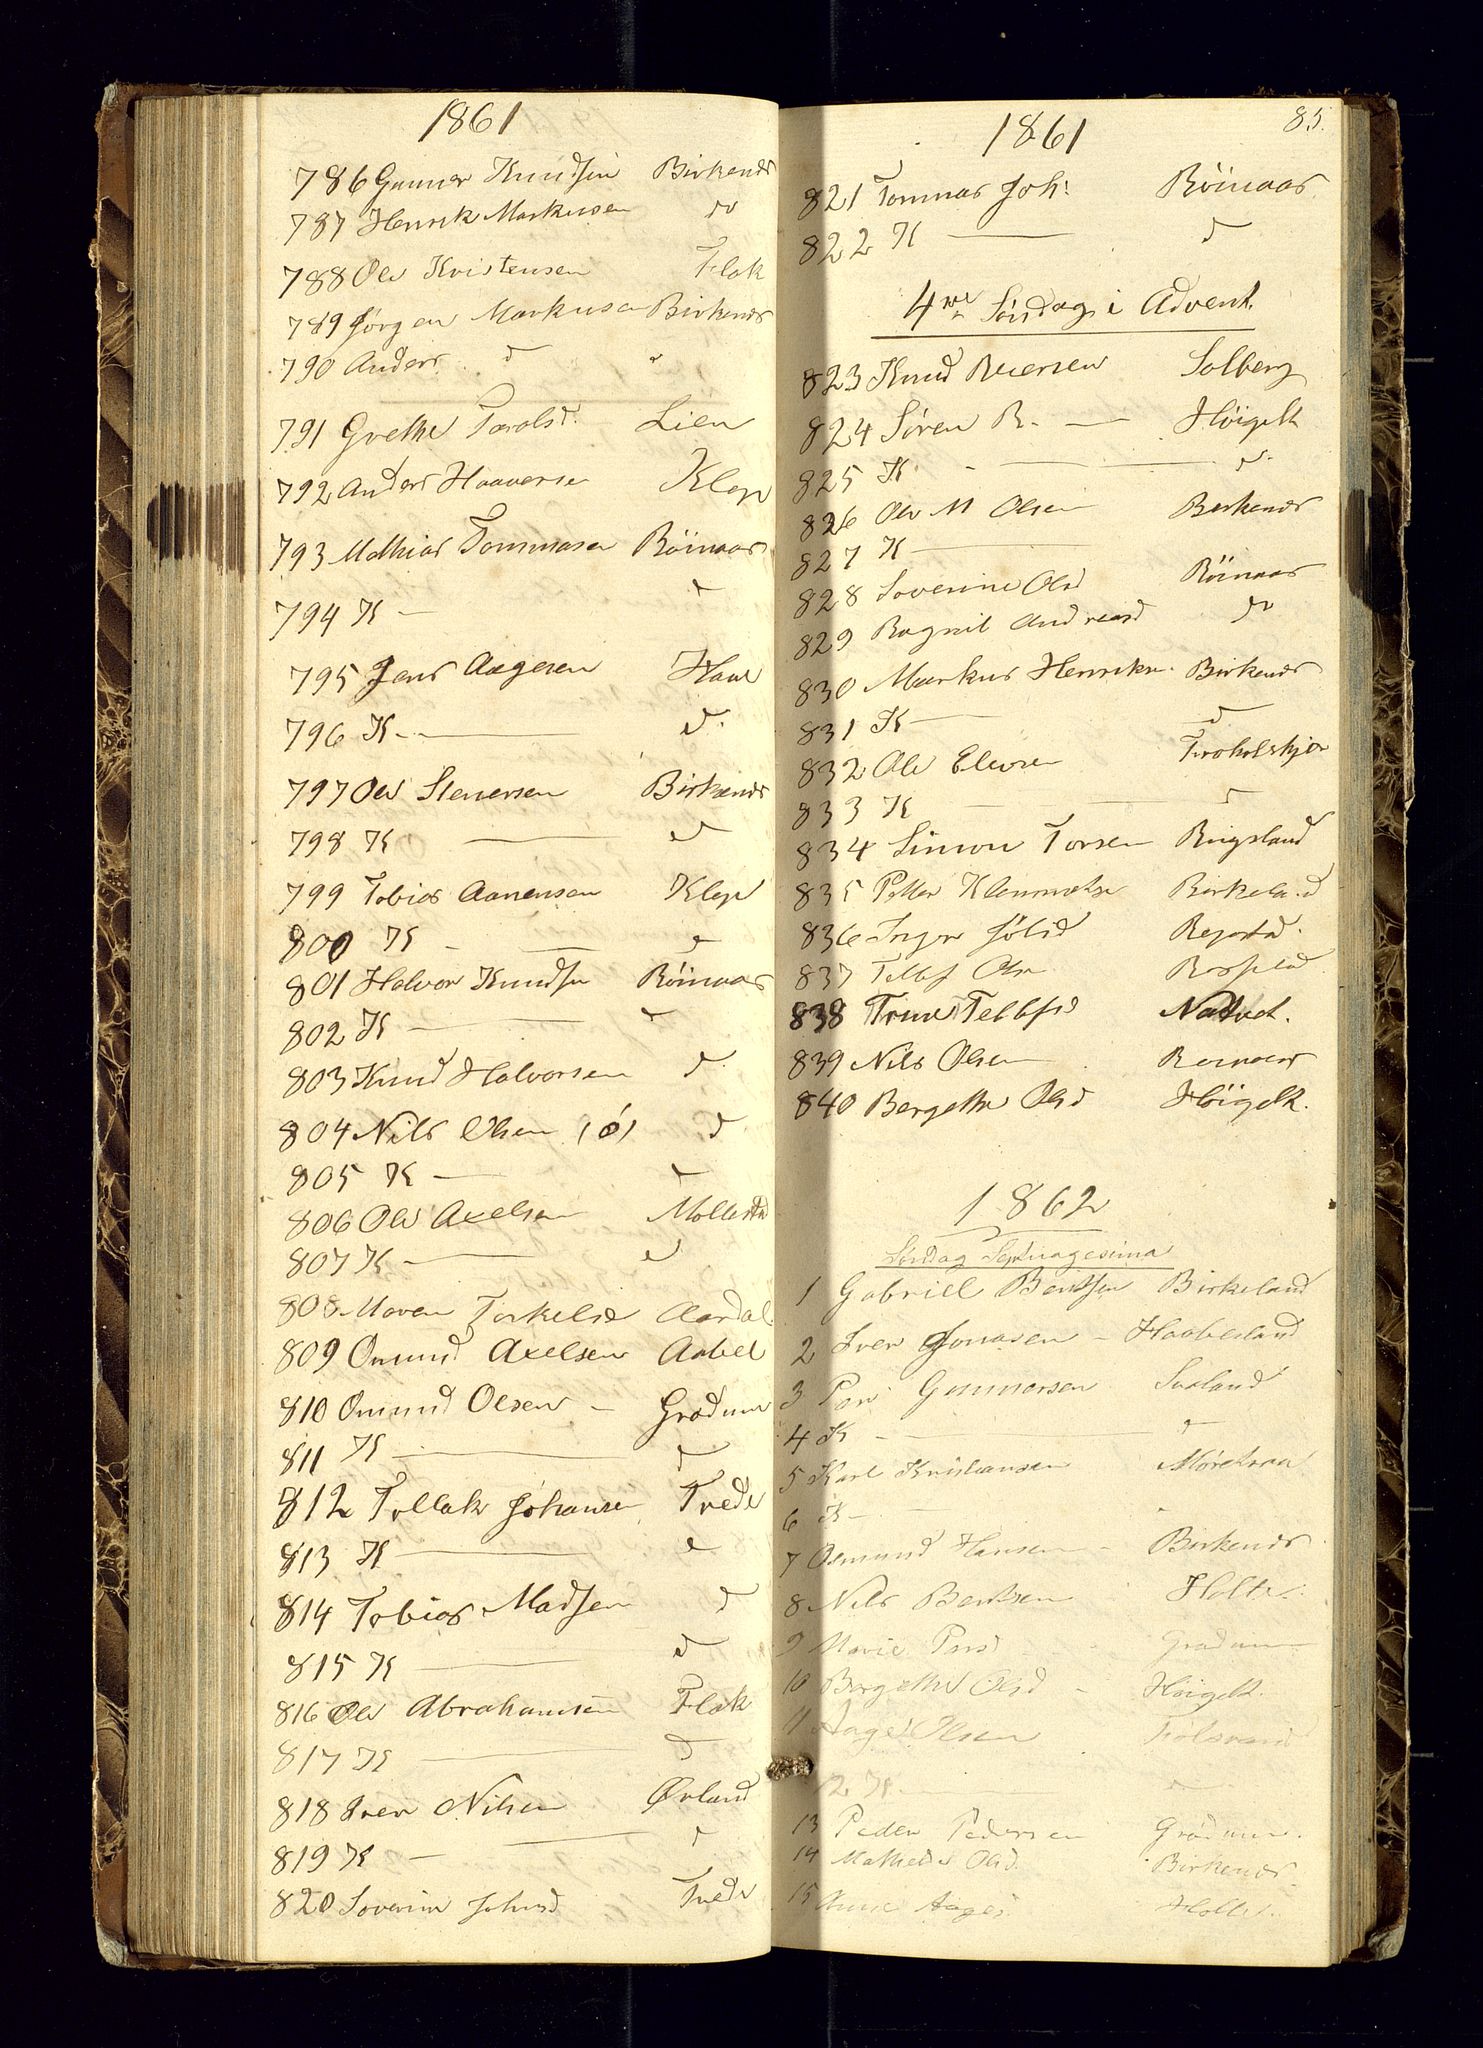 1861
786 Gunner Knudsen Birkenes
787 Henrik Markusen do
788 Ole Kristensen Flak
789 Jørgen Markusen Birkenes
790 Anders d "
791 Grethe Tarolsd. Lien
792 Anders Haaversen Klep
793 Mathias Tommasen Röinaas
794 K — d
795 Jens Aagesen Have
796 K — d
797 Ole Stenersen Birkenes
798 K — d
799 Tobias Aanensen Klep
800 K — d
801 Halvor Knudsen Röinaas
802 K — d
803 Knud Halvorsen d
804 Nils Olsen (ö) d
805 K — d
806 Ole Axelsen Mollestad
807 K — d
808 Maren Torkelsd Aardal
809 Omund Axelsen Aabel
810 Omund Olsen — Gradum
811 K — d
812 Tellak Johansen Trede
813 K — d
814 Tobias Madsen d
815 K — d
816 Ole Abrahamsen Flak
817 K — d
818 Iver Nilsen Øvland
819 K — d
820 Severin Johnsd Trede
1861
85.
821 Tommas Joh: Röinaas
822 K — d
4de Søndag i Advent.
823 Knud Reiersen Solberg
824 Søren R. — Höigelt
825 K — d.
826 Ole M Olsen Berkenes
827 K —
828 Severine Olsd Röinaas
829 Ragnil Andreasd do
830 Markus Henriksn. Birkenes
831 K — d
832 Ole Elevsen
833 K — d
834 Simon Torsen Ringsland
835 Petter Klemmetsn Birkeland
836 Inger Jölsd
837 Tellef Olsn
838 Trine Tellefsd Natvet.
839 Nils Olsen Reinaas
840 Bergethe Olsd Höigelt.
1862
Søndag Septuagesima
1 Gabriel Bentsen Birkeland
2 Iver Jonasen — Haabesland
3 Peri Gunnersen Svaland
4 K — d
5 Karl Kristiansen
6 K — "
7 Osmund Hansen — Birkenes
8 Nils Bentsen Holte.
9 Marie Persd — Gradum
10 Bergethe Olsd — Höigelt.
11 Aage Olsen
12 K. — d
13 Peder Pedersen Gradum.
14 Mathilde Olsd. Birkenes.
15 Anne Aages. Holte.